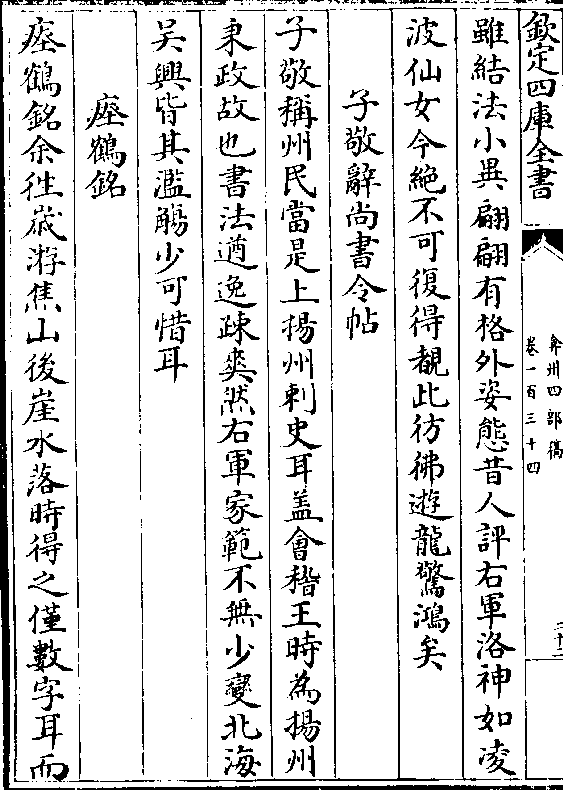 欽定四庫全書
弇州四部稿
卷一百三十四
雖結法小異翩翩有格外姿態昔人評右軍洛神如凌
波仙女今絶不可復得覩此彷彿遊龍驚鴻矣
子敬辭尚書令帖
子敬稱州民當是上揚州刺史耳盖會稽王時為揚州
秉政故也書法遒逸疎爽然右軍家範不無少變北海
吴興皆其濫觴少可惜耳
瘞鶴銘
瘞鶴銘余徃嵗游焦山後崖水落時得之僅數字耳而